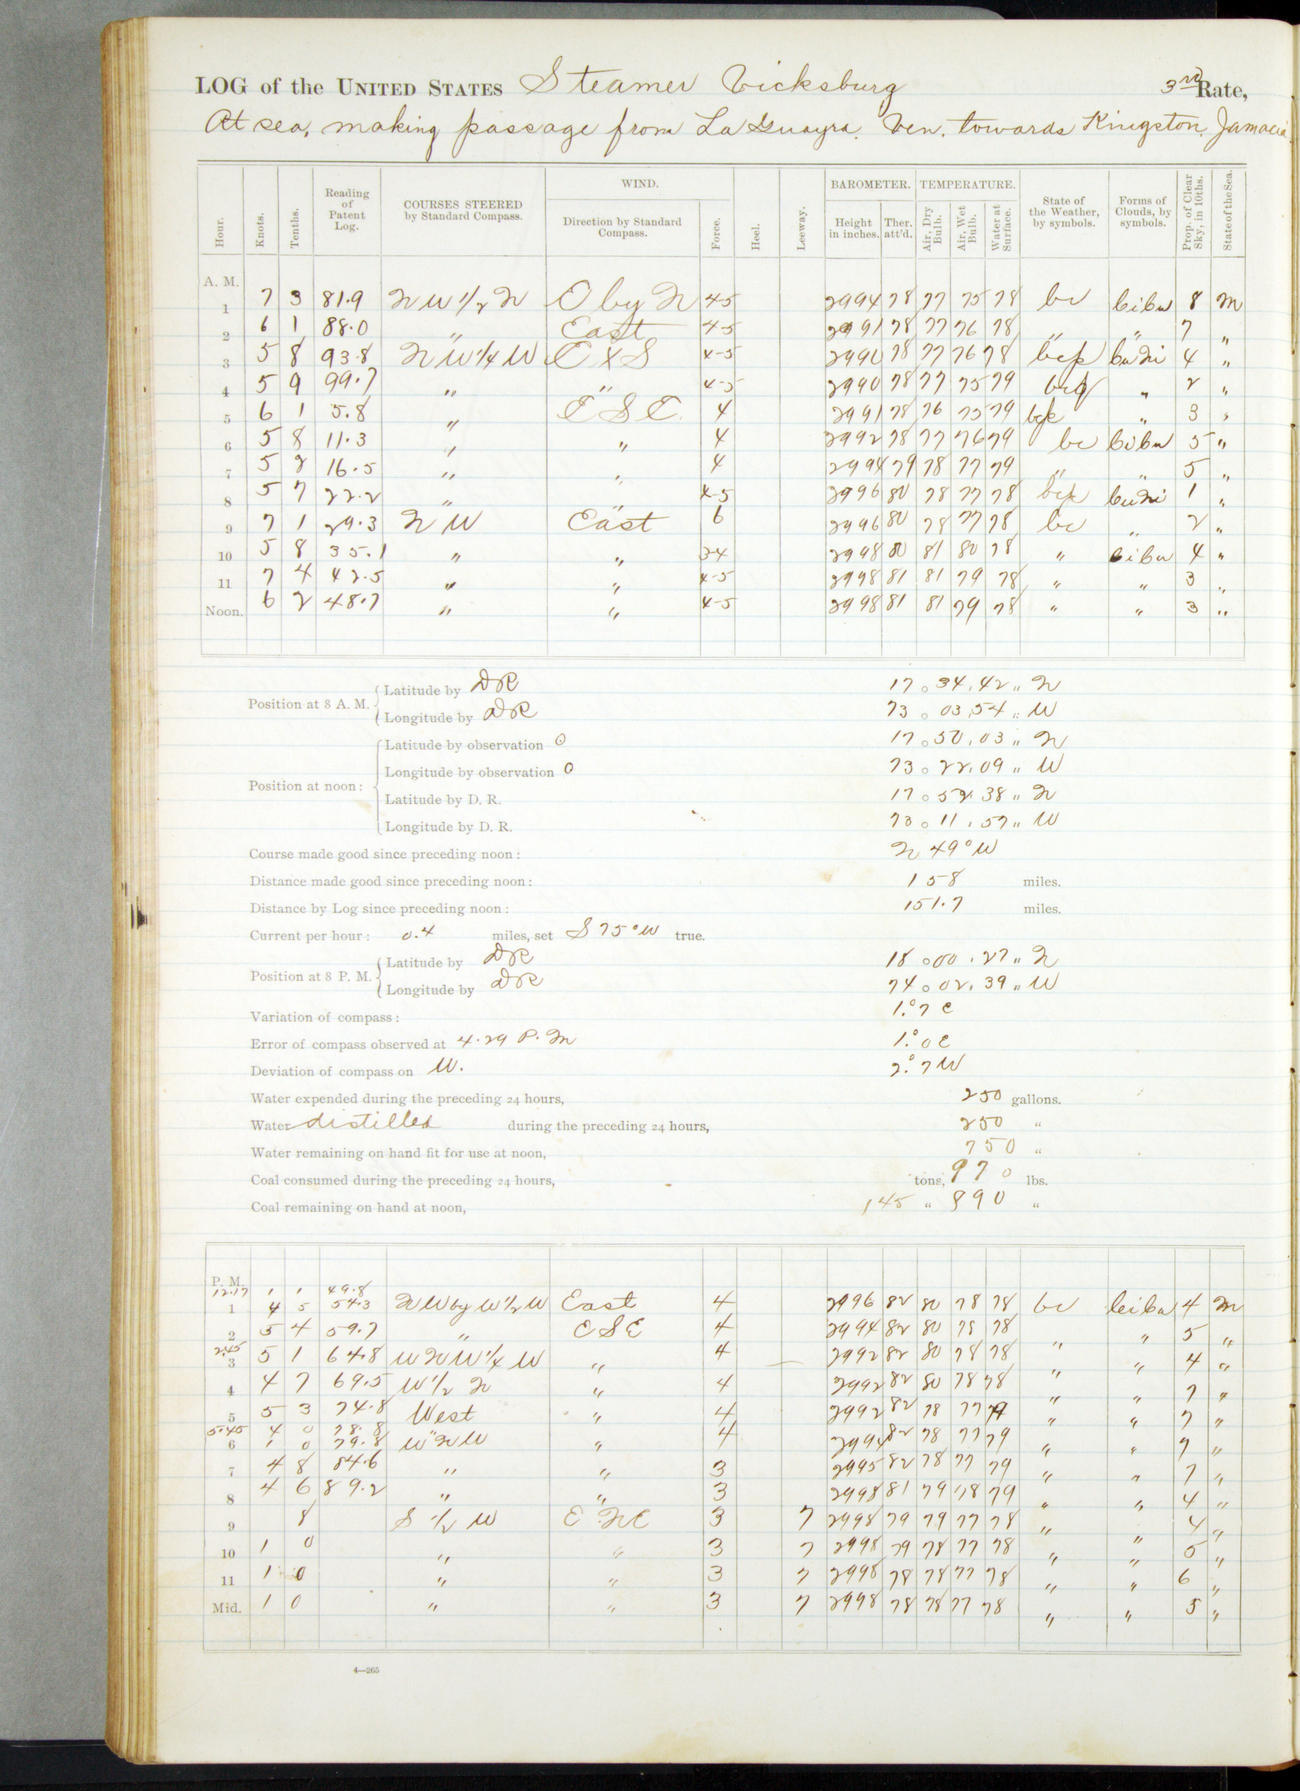 LOG of the UNITED STATES Steamer Vicksburg 3rd Rate,
At sea, making passage from La Guayra, Ven. towards Kingston, Jamacia
Hour. Knots. Tenths. Reading of Patent Log. COURSES STEERED by Standard Compass. WIND. Direction by Standard Compass. Force. Heel. Leeway. BAROMETER. Height in inches. Ther. att'd. TEMPERATURE. Air, Dry Bulb. Air, Wet Bulb. Water at Surface. State of the Weather, by symbols. Forms of Clouds, by symbols. Prop. of Clear Sky, in 10ths. State of the Sea.
A. M.
1 7 3 81.9 NW 1/2 N E by N 4-5 2994 78 77 75 78 bc 8 m
2 6 1 88.0 " East 4-5 2991 78 77 76 78 " " 7 "
3 5 8 93.8 NW 1/4 W ExS 4-5 2990 78 77 76 78 bcp 4 "
4 5 9 99.7 " " 4-5 2990 78 77 75 79 bcq " 2 "
5 6 1 5.8 " ESE. 4 2991 78 76 75 79 " 3 "
6 5 8 11.3 " " 4 2992 78 77 76 79 bc 5 "
7 5 2 16.5 " " 4 2994 79 78 77 79 " " 5 "
8 5 7 22.2 " " 4-5 2996 80 78 77 78 bcp 1 "
9 7 1 29.3 NW East 6 2996 80 78 77 78 bc " 2 "
10 5 8 35.1 " " 3-4 2998 80 81 80 78 " 4 "
11 7 4 42.5 " " 4-5 2998 81 81 79 78 " " 3 "
Noon. 6 2 48.7 " " 4-5 2998 81 81 79 78 " " 3 "
Position at 8 A. M. Latitude by DR 17 ° 34 ' 42 " N
Longitude by DR 73 ° 03 ' 54 " W
Position at noon: Latitude by observation ⊙ 17 ° 50 ' 03 " N
Longitude by observation ⊙ 73 ° 22 ' 09 " W
Latitude by D. R. 17 ° 52 ' 38 " N
Longitude by D. R. 73 ° 11 ' 57 " W
Course made good since preceding noon: N 49° W
Distance made good since preceding noon: 158 miles.
Distance by Log since preceding noon: 151.7 miles.
Current per hour: 0.4 miles, set S 75° W true.
Position at 8 P. M. Latitude by DR 18 ° 00 ' 27 " N
Longitude by DR 74 ° 02 ' 39 " W
Variation of compass: 1.°7 E
Error of compass observed at 4.29 P. M 1.°0 E
Deviation of compass on W. 2.°7 W
Water expended during the preceding 24 hours, 250 gallons.
Water distilled during the preceding 24 hours, 250 "
Water remaining on hand fit for use at noon, 750 "
Coal consumed during the preceding 24 hours, tons, 970 lbs.
Coal remaining on hand at noon, 145 " 890 "
P. M.
12.17 1 1 49.8
1 4 5 54.3 NW by W 1/2 W East 4 2996 82 80 78 78 bc 4 m
2 5 4 59.7 " ESE 4 2994 82 80 78 78 " " 5 "
2.45
3 5 1 64.8 WNW 1/4 W " 4 2992 82 80 78 78 " " 4 "
4 4 7 69.5 W 1/2 N " 4 2992 82 80 78 78 " " 7 "
5 5 3 74.8 West " 4 2992 82 78 77 79 " " 7 "
5.45 4 0 78.8
6 1 0 79.8 W"NW " 4 2994 82 78 77 79 " " 7 "
7 4 8 84.6 " " 3 2995 82 78 77 79 " " 7 "
8 4 6 89.2 " " 3 2998 81 79 78 79 " " 4 "
9 8 S 1/2 W E NE 3 7 2998 79 79 77 78 " " 4 "
10 1 0 " " 3 7 2998 79 78 77 78 " " 5 "
11 1 0 " " 3 7 2998 78 78 77 78 " " 6 "
Mid. 1 0 " " 3 7 2998 78 78 77 78 " " 5 "
4—265